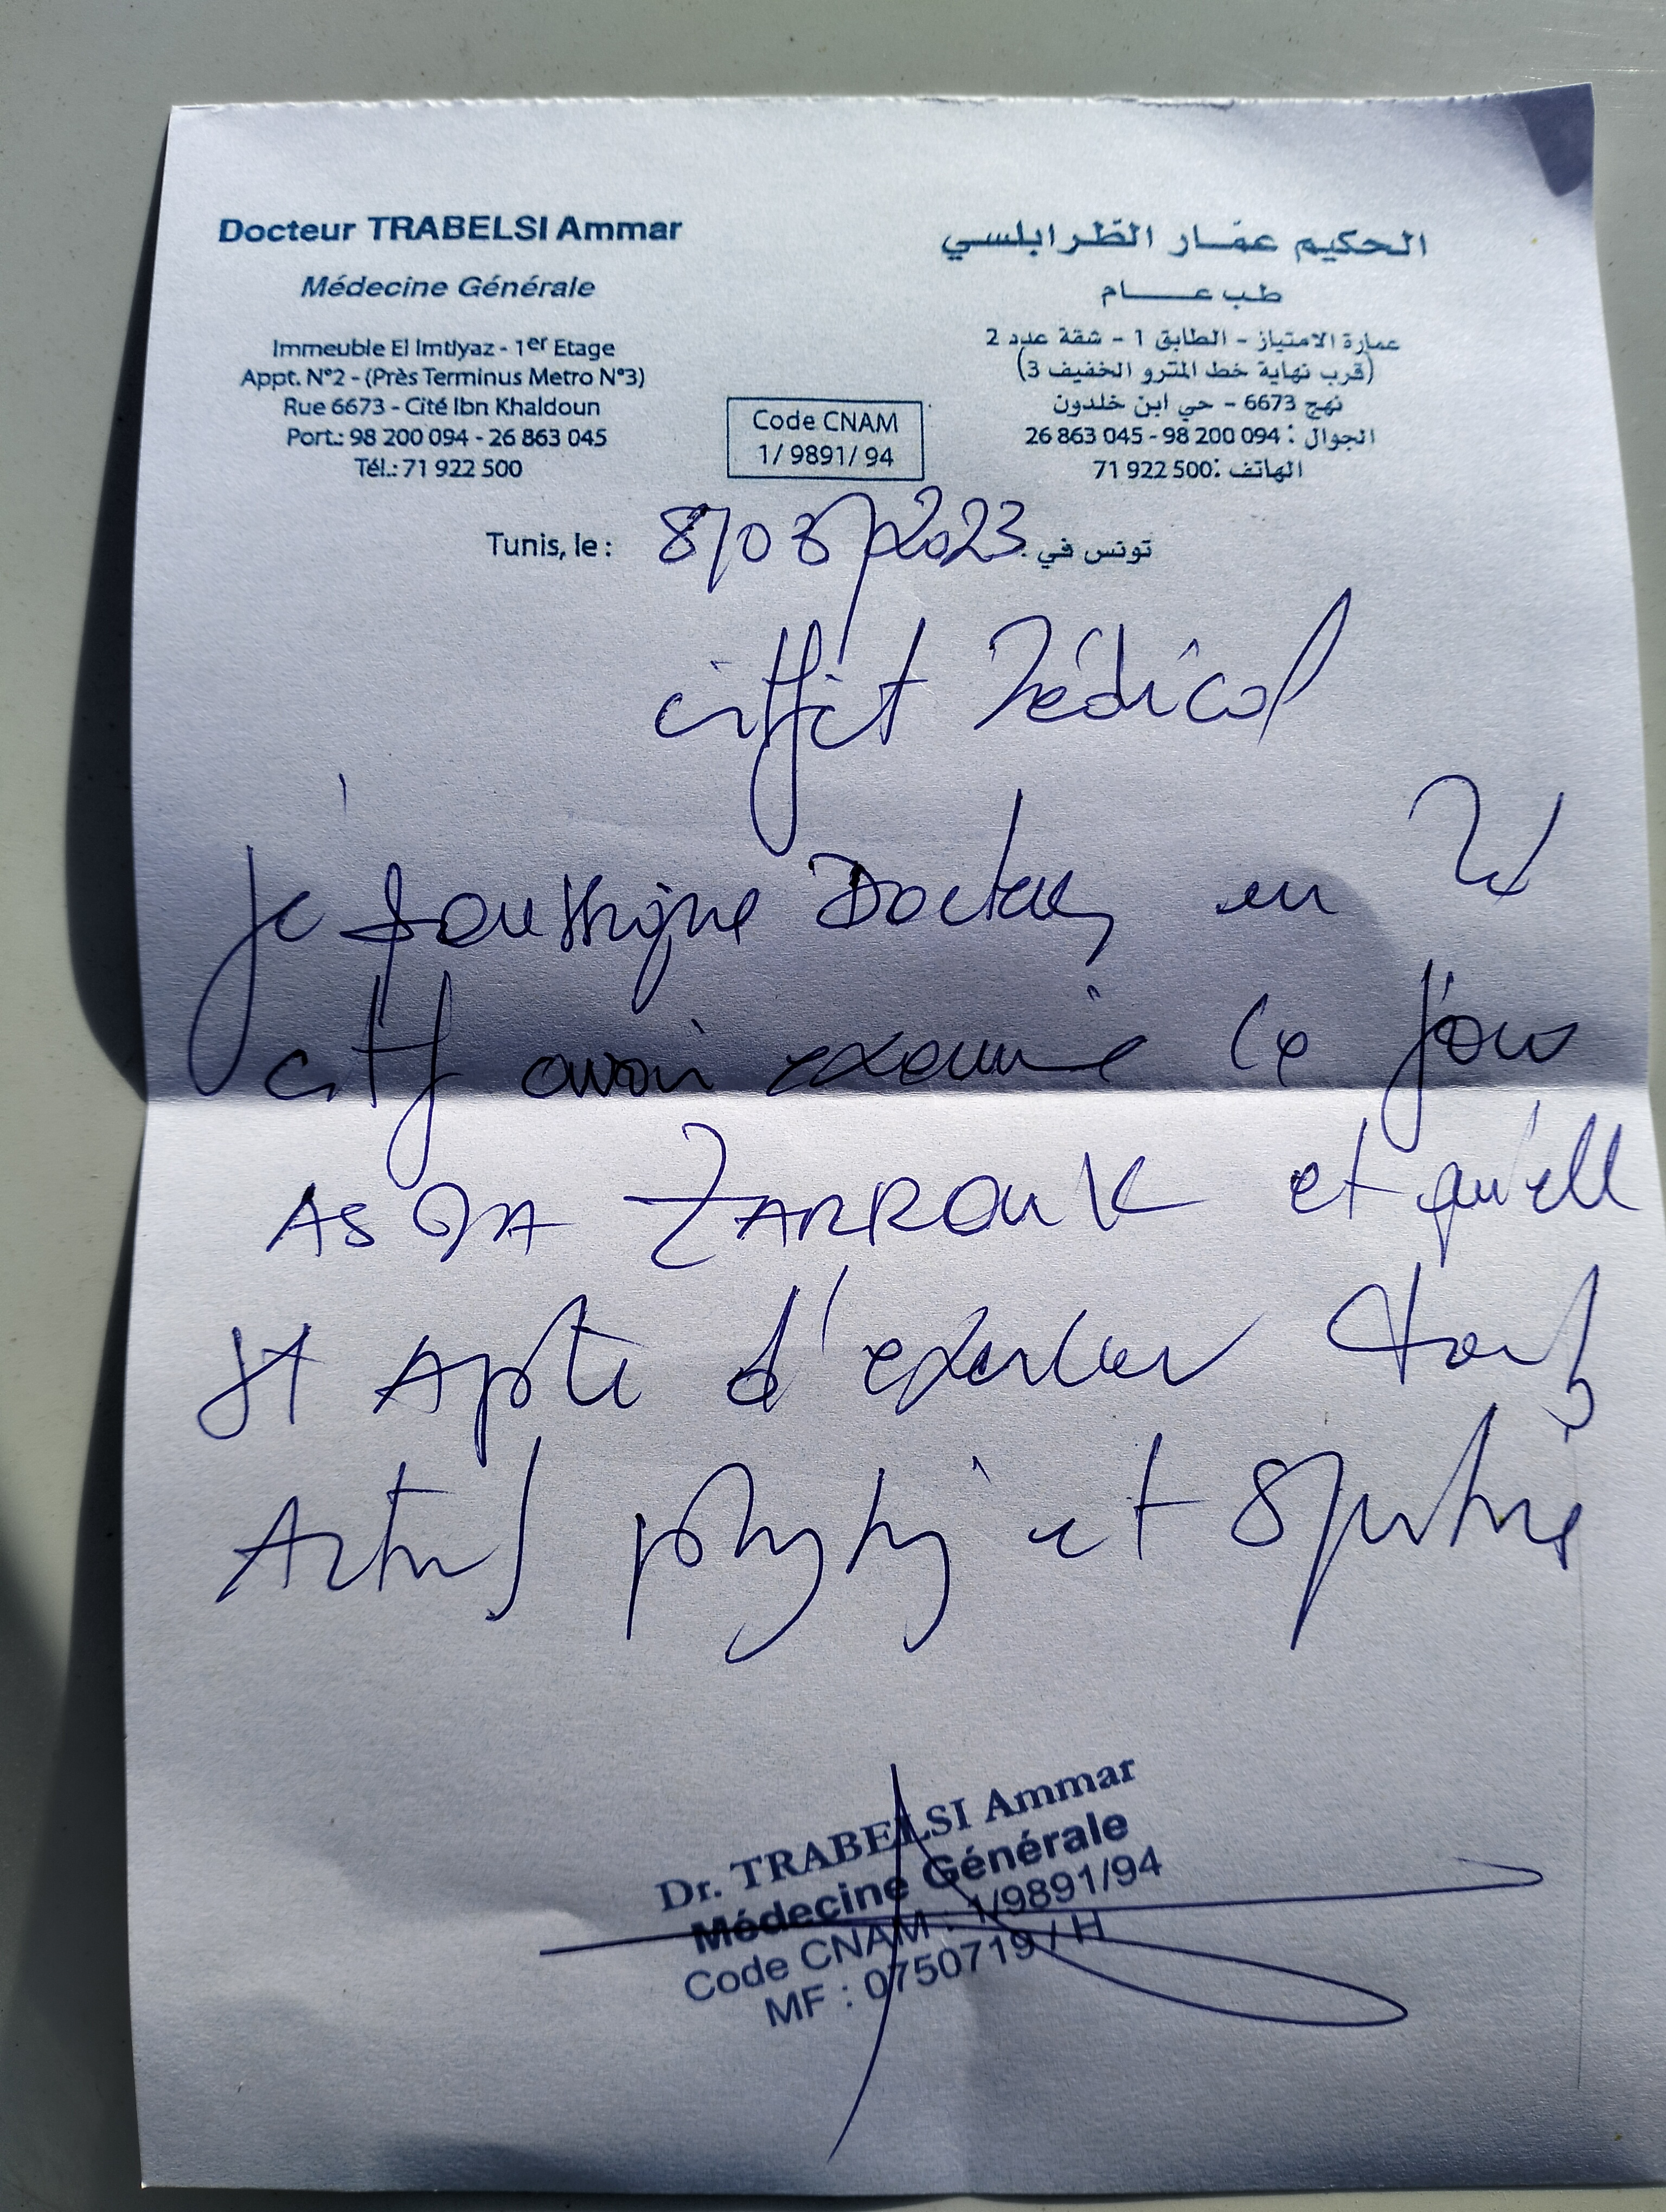 Docteur TRABELSI Ammar
Médecine Générale
Immeuble El Imtiyaz - 1er Etage
Appt. N°2 - (Près Terminus Metro N°3)
Rue 6673 - Cité Ibn Khaldoun
Port.: 98 200 094 - 26 863 045
Tél.: 71 922 500
الحكيم عمّار الطّرابلسي
طب عـــــام
عمارة الامتياز - الطابق 1 - شقة عدد 2
(قرب نهاية خط المترو الخفيف 3)
نهج 6673 - حي ابن خلدون
الجوال : 094 200 98 - 045 863 26
الهاتف: 500 922 71
Code CNAM
1/ 9891/ 94
Tunis, le : 8/03/2023 تونس في
Médical
je soussigne Docteur en
avoir examine ce jour
ASMA ZARROUK et qu'elle
st Apte d'exercer
et
Dr. TRABELSI Ammar
Médecine Générale
Code CNAM : 1/9891/94
MF : 0750719 / H